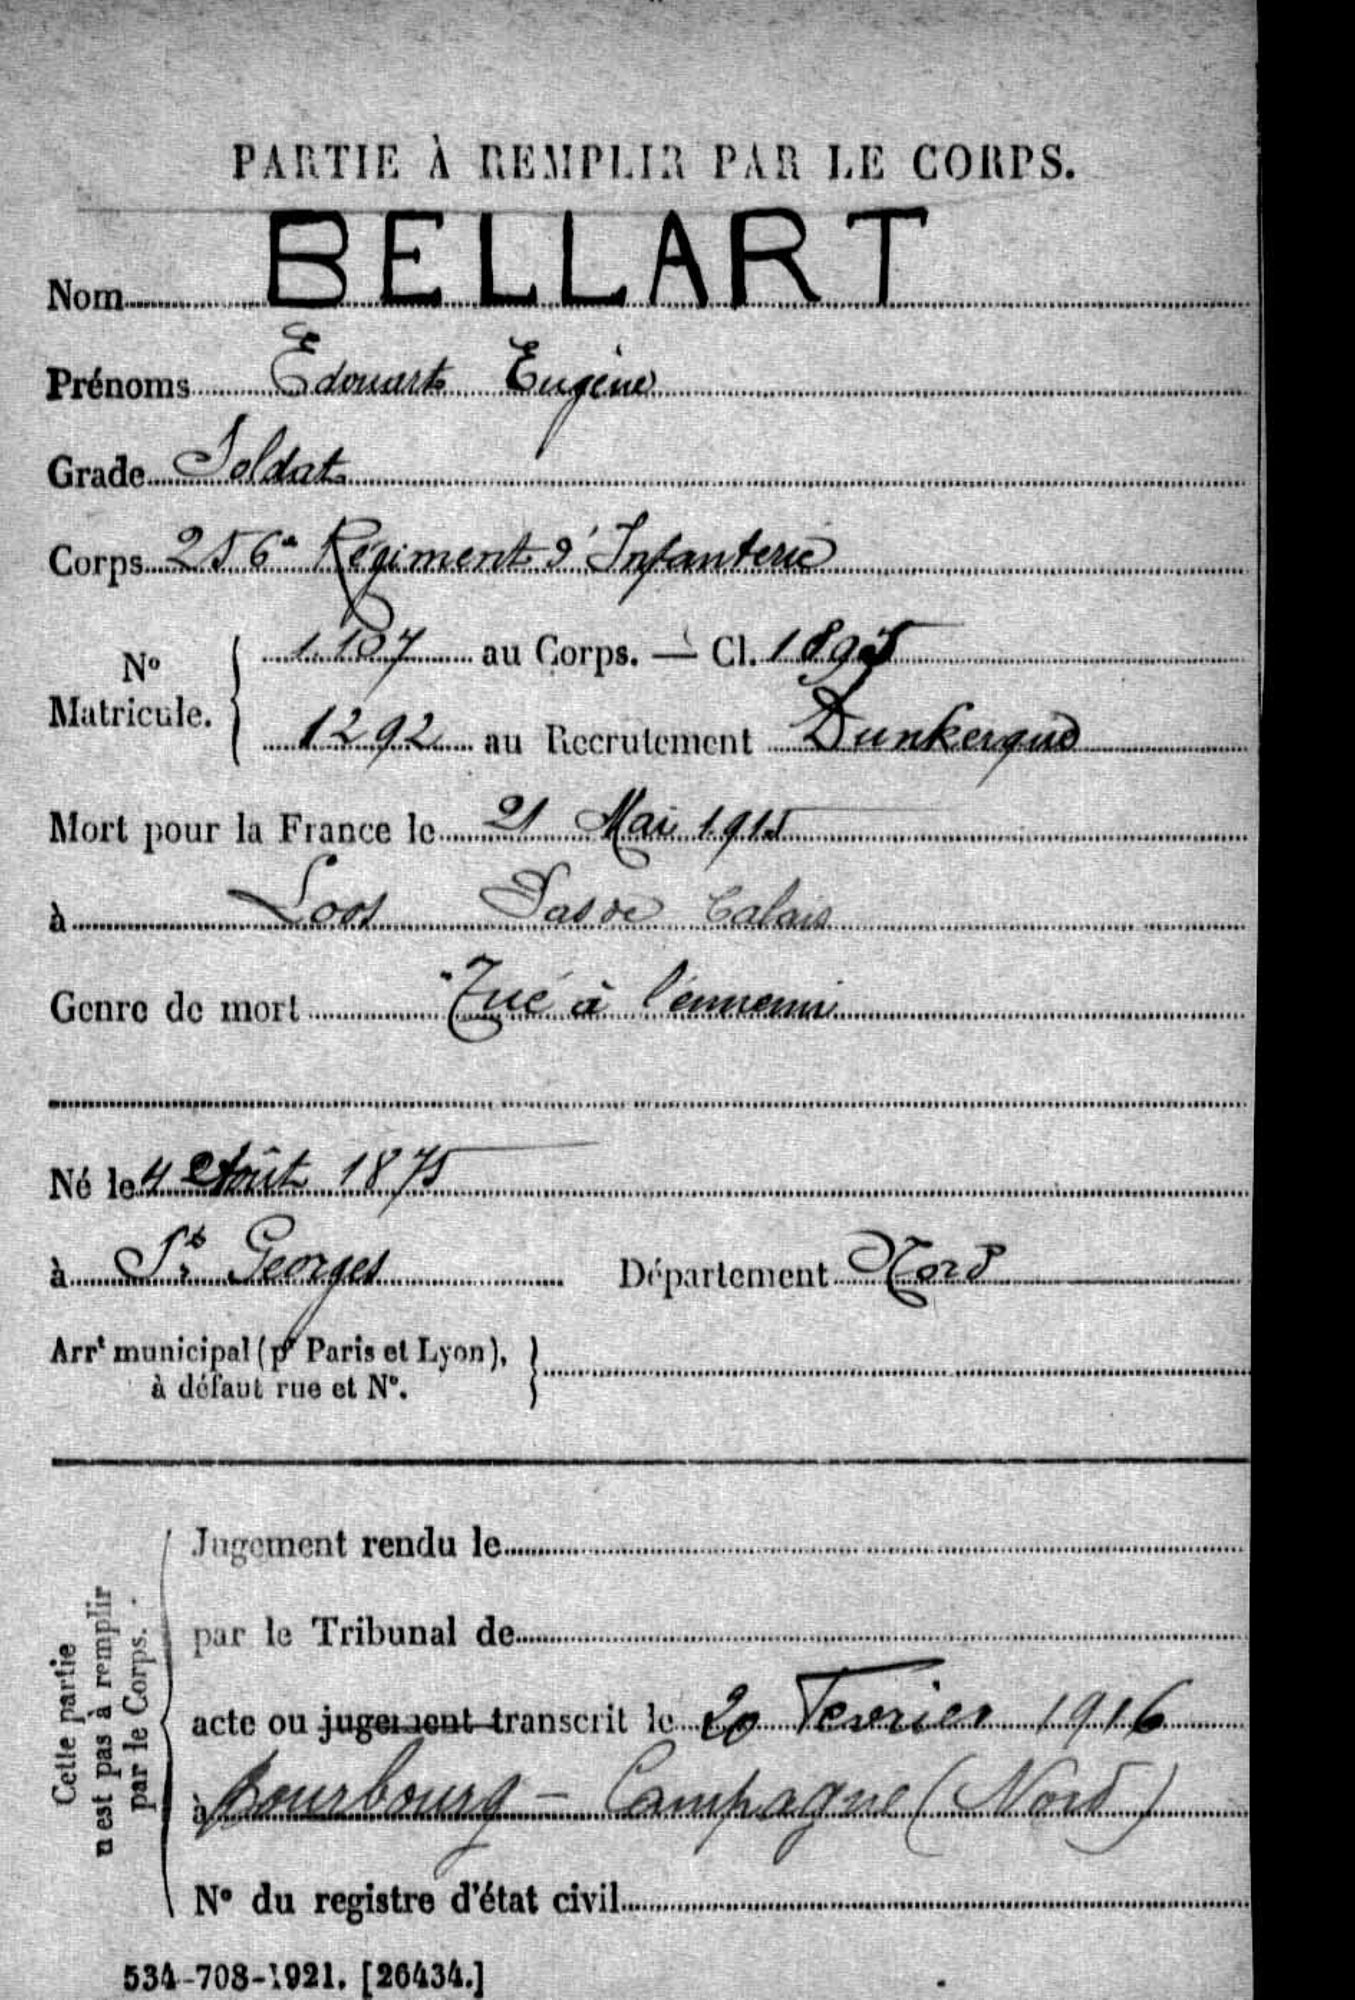 PARTIE À REMPLIR PAR LE CORPS.
Nom BELLART
Prénoms Edouart Eugène
Grade Soldat
Corps 256e Régiment d'Infanterie
No Matricule. { 1.107 au Corps. — Cl. 1895
1292 au Recrutement Dunkerque
Mort pour la France le 21 Mai 1915
à Loos Pas de Calais
Genre de mort Tué à l'ennemi
Né le 4 Août 1875
à St Georges Département Nord
Arrt municipal (pr Paris et Lyon),
à défaut rue et No.
Cette partie
n'est pas à remplir
par le Corps.
Jugement rendu le
par le Tribunal de
acte ou jugement transcrit le 20 Fevrier 1916
à Bourbourg – Campagne (Nord)
No du registre d'état civil
534-708-1921. [26434.]